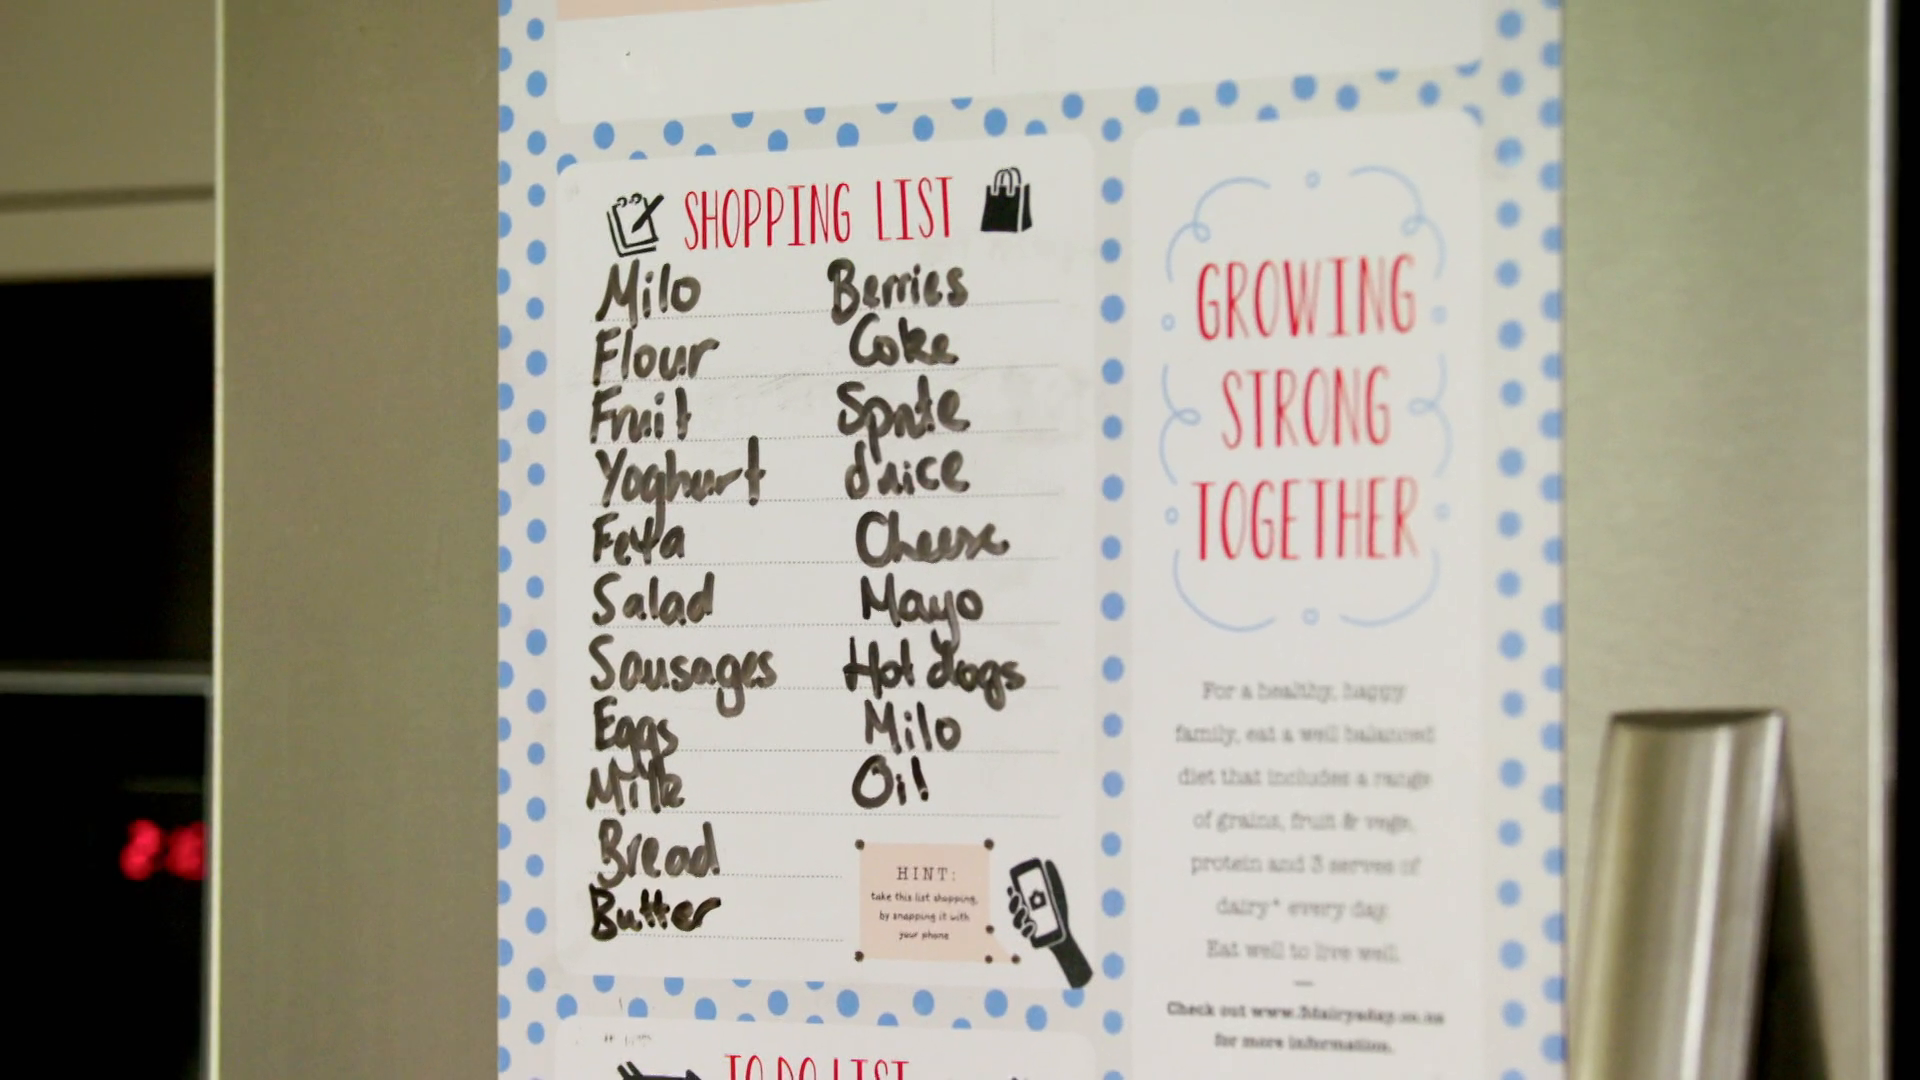 SHOPPING LIST
Milo
Flour
Fruit
Yoghurt
Feta
Salad
Sausages
Eggs
Milk
Bread
Butter
Berries
Coke
Sprite
Juice
Cheese
Mayo
Hot dogs
Milo
Oil
HINT:
take this list shopping,
by snapping it with
your phone
GROWING
STRONG
TOGETHER
For a healthy, happy
family, eat a well balanced
diet that includes a range
of grains, fruit & vege,
protein and 3 serves of
dairy* every day.
Eat well to live well.
Check out www.3dairyaday.co.nz
for more information.
TO DO LIST